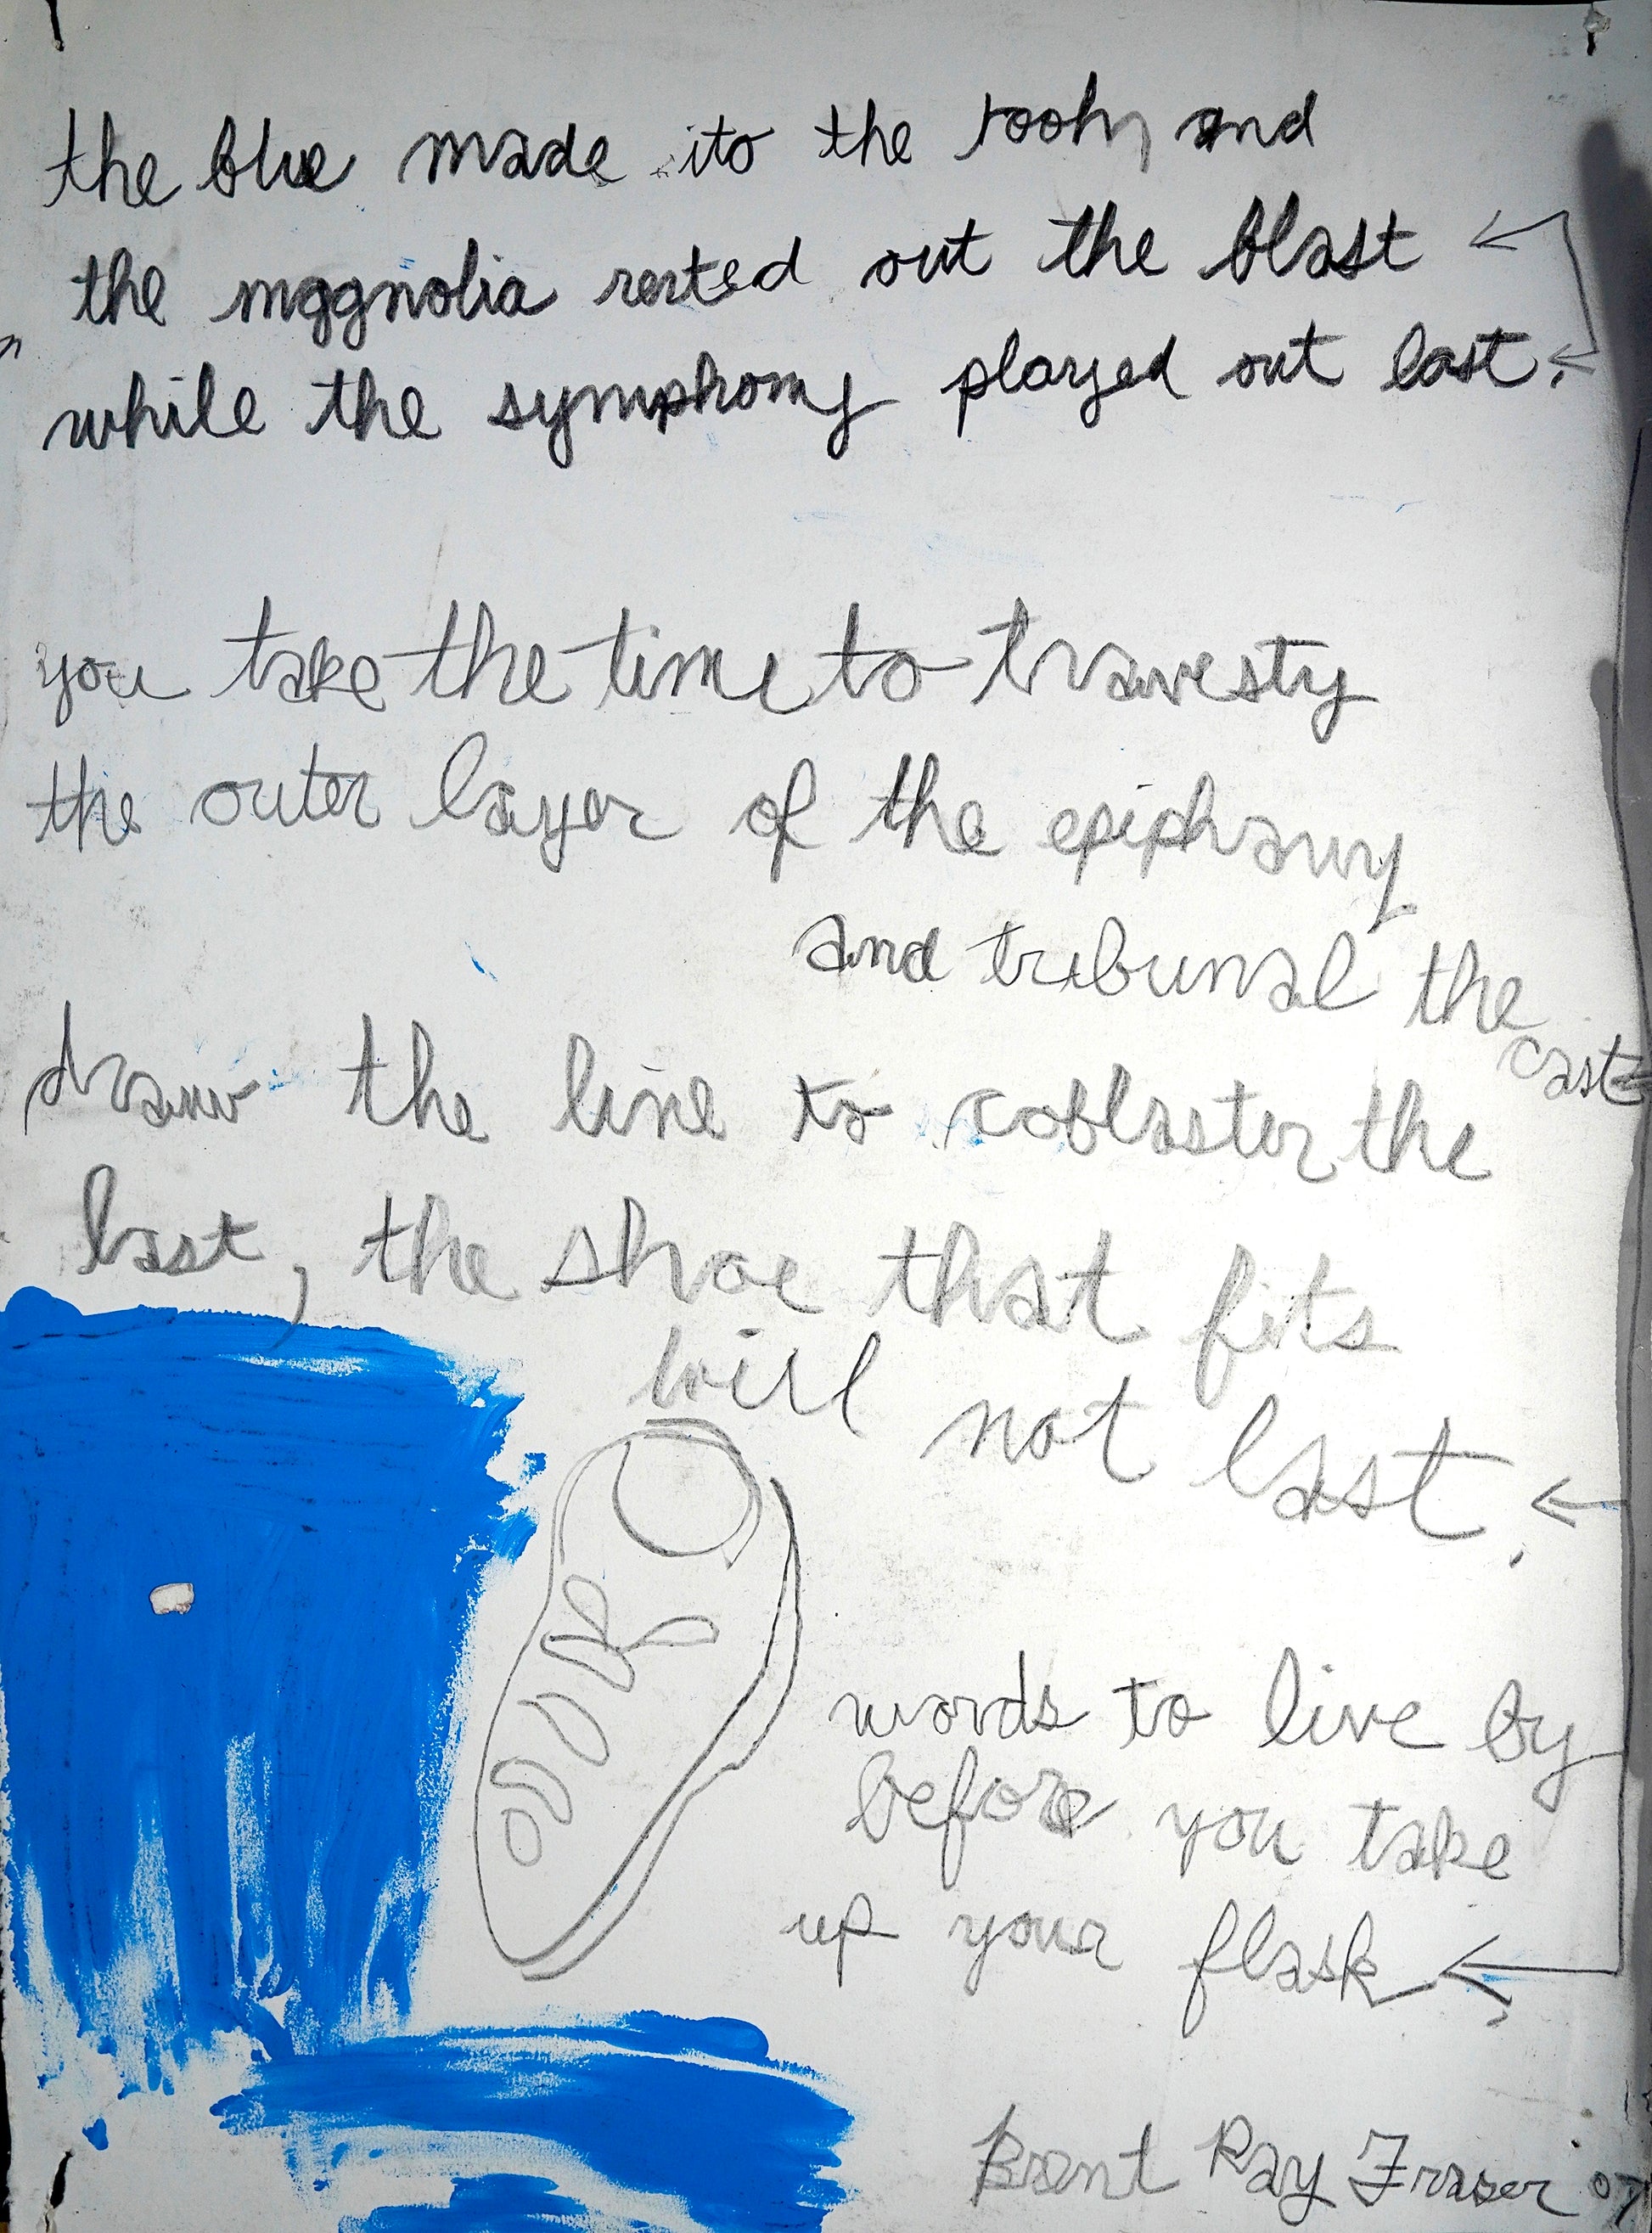 the blue made ito the rooh and
the magnolia rested out the blast
while the symphony played out last.
you take the time to travesty
the outer layer of the epiphany
and tribunal the
cast
draw the line to coblaster the
last, the shoe that fits
will not last.
words to live by
before you take
up your flask.
Brent Ray Fraser 07